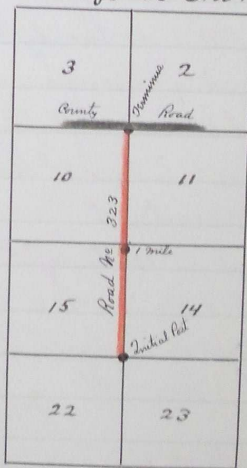 3 2
County Terminus Road
10 11
Road No 323
1 mile
15 14
Initial Post
22 23